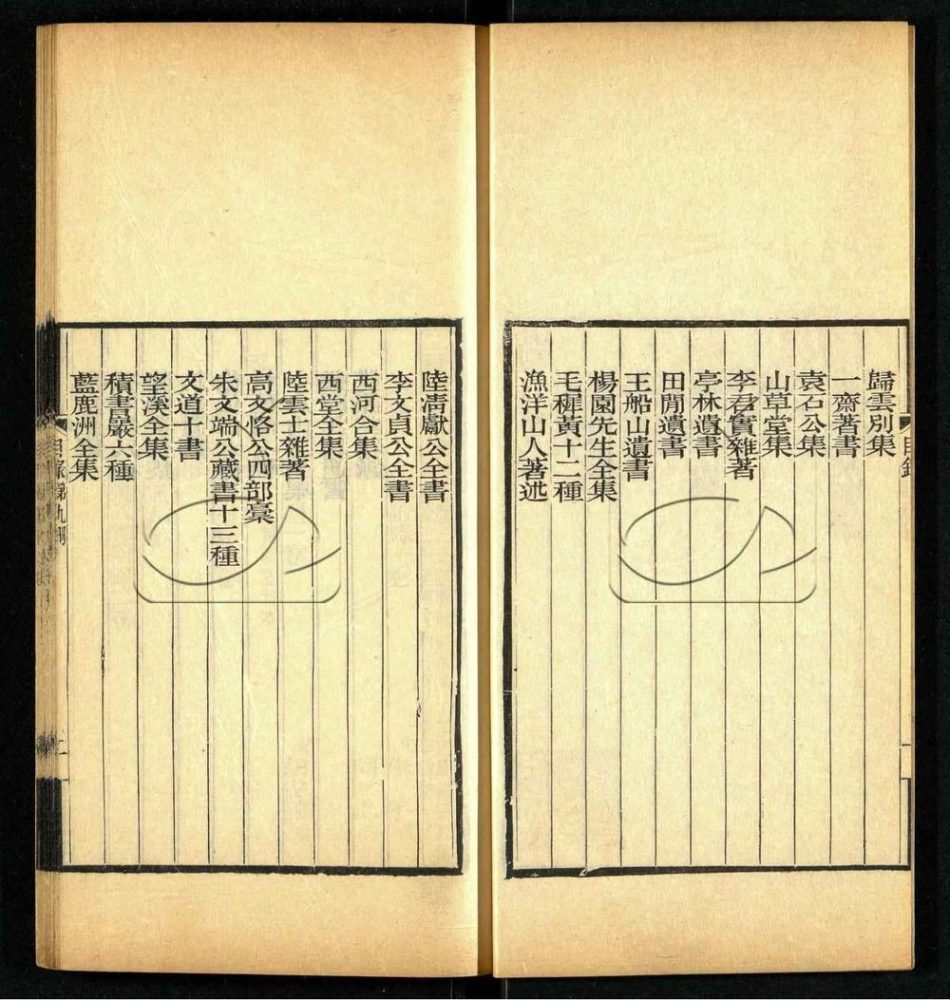 歸雲別集
一齋著書
袁石公集
山草堂集
李君實雜著
亭林遺書
田閒遺書
王船山遺書
楊園先生全集
毛穉黃十二種
漁洋山人著述
陸清獻公全書
李文貞公全書
西河合集
西堂全集
陸雲士雜著
高文恪公四部稾
朱文端公藏書十三種
文道十書
望溪全集
積書巖六種
藍鹿洲全集
目錄